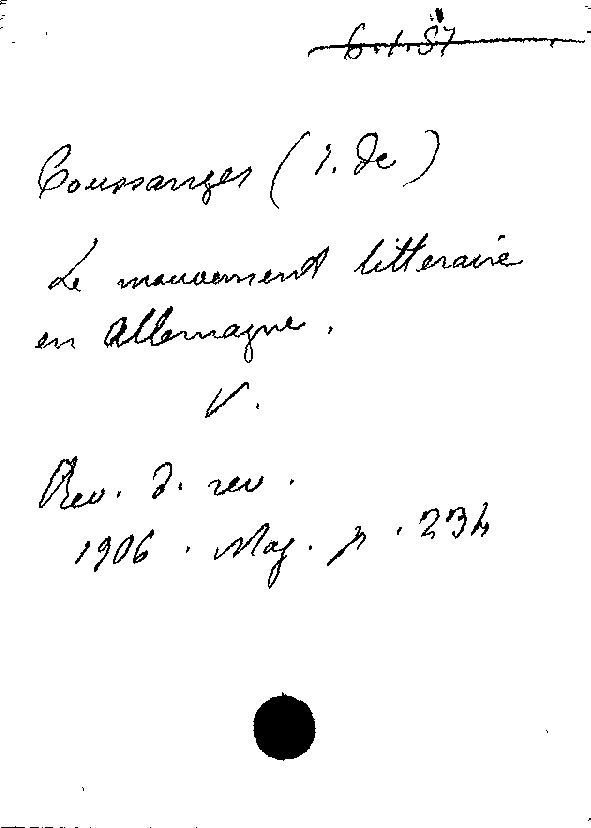 6.1.87
Coussanges (J. de)
Le mouvement litteraire
en Allemagne.
V.
Rev. d. rev.
1906. Mag. p. 234